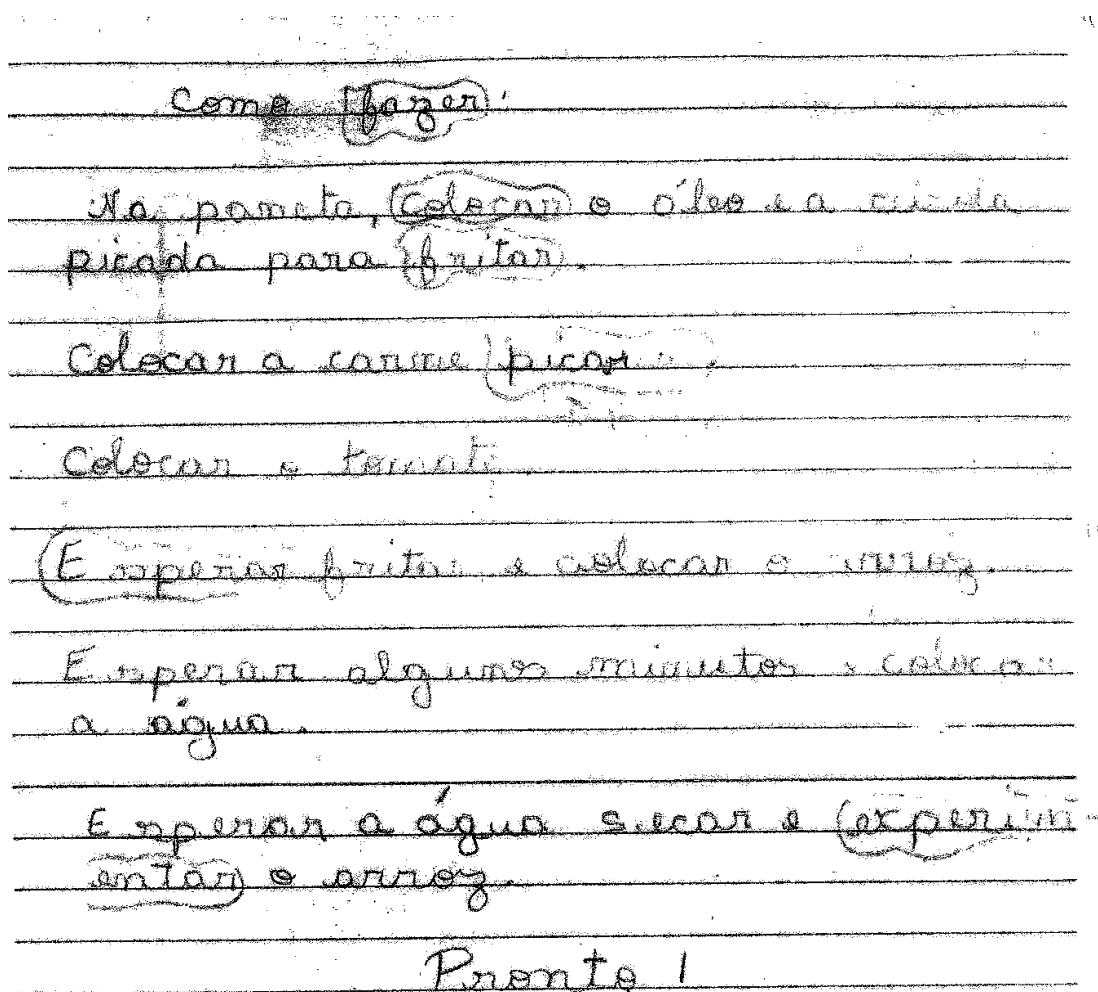 Como fazer:
Na paneta, colocar o óleo e a
picada para fritar.
Colocar a carne picar
Colocar o tomate
Esperar fritar e colocar o arroz.
Esperar alguns minutos e colocar
a água.
Esperar a água secar e (experim-
entar) o arroz.
Pronto!